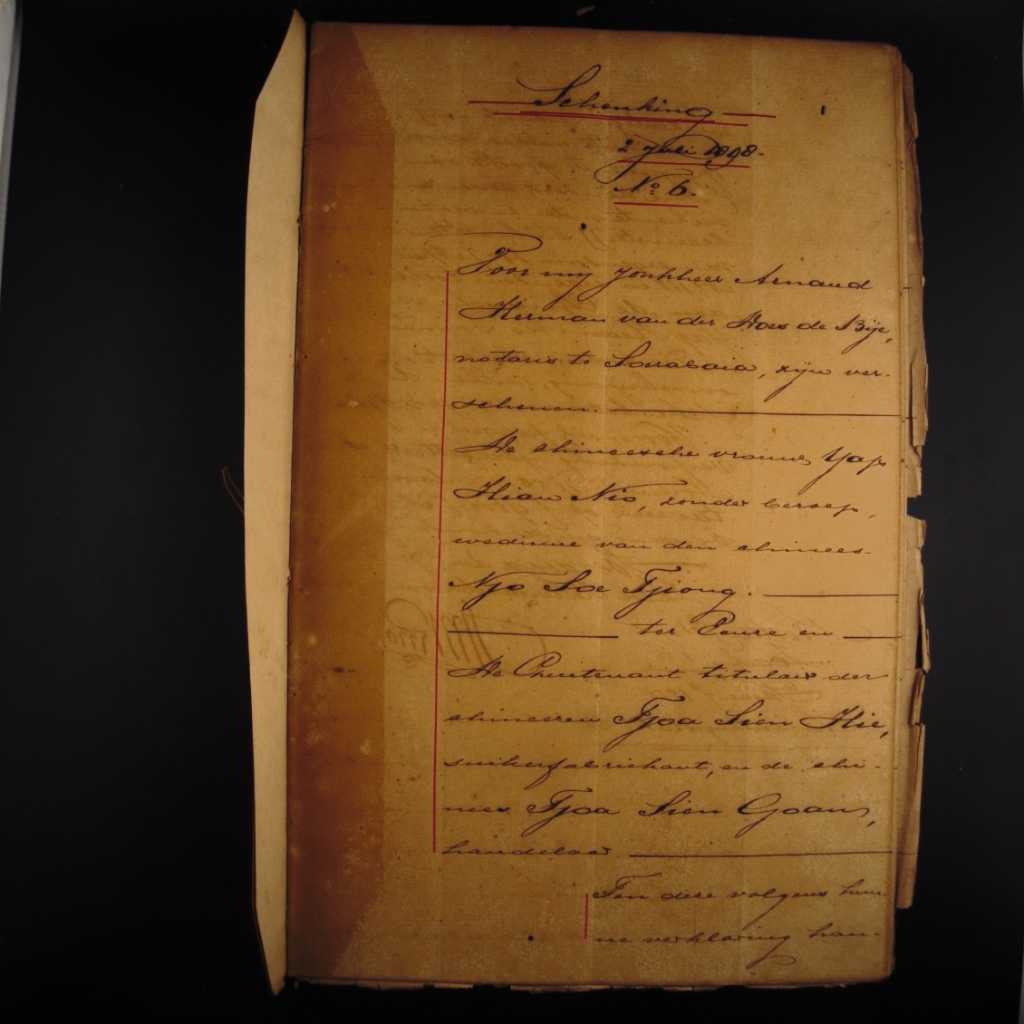 Schenking
2 Juli 1898.
No 6.
Voor mij Jonkheer Arnaud
Herman van der Hoes de Bije,
notaris te Soerabaia, zijn ver-
schenen.
De chineesche vrouw Yap
Hian Nio, zonder beroep,
weduwe van den chinees
Njo Soe Tjiong.
ter Eenre en
De Luitenant titulair der
chineezen Tjoa Sien Hie,
suikerfabrikant, en de chi-
nees Tjoa Sien Goan,
handelaar
Ten deze volgens hun-
ne verklaring han-